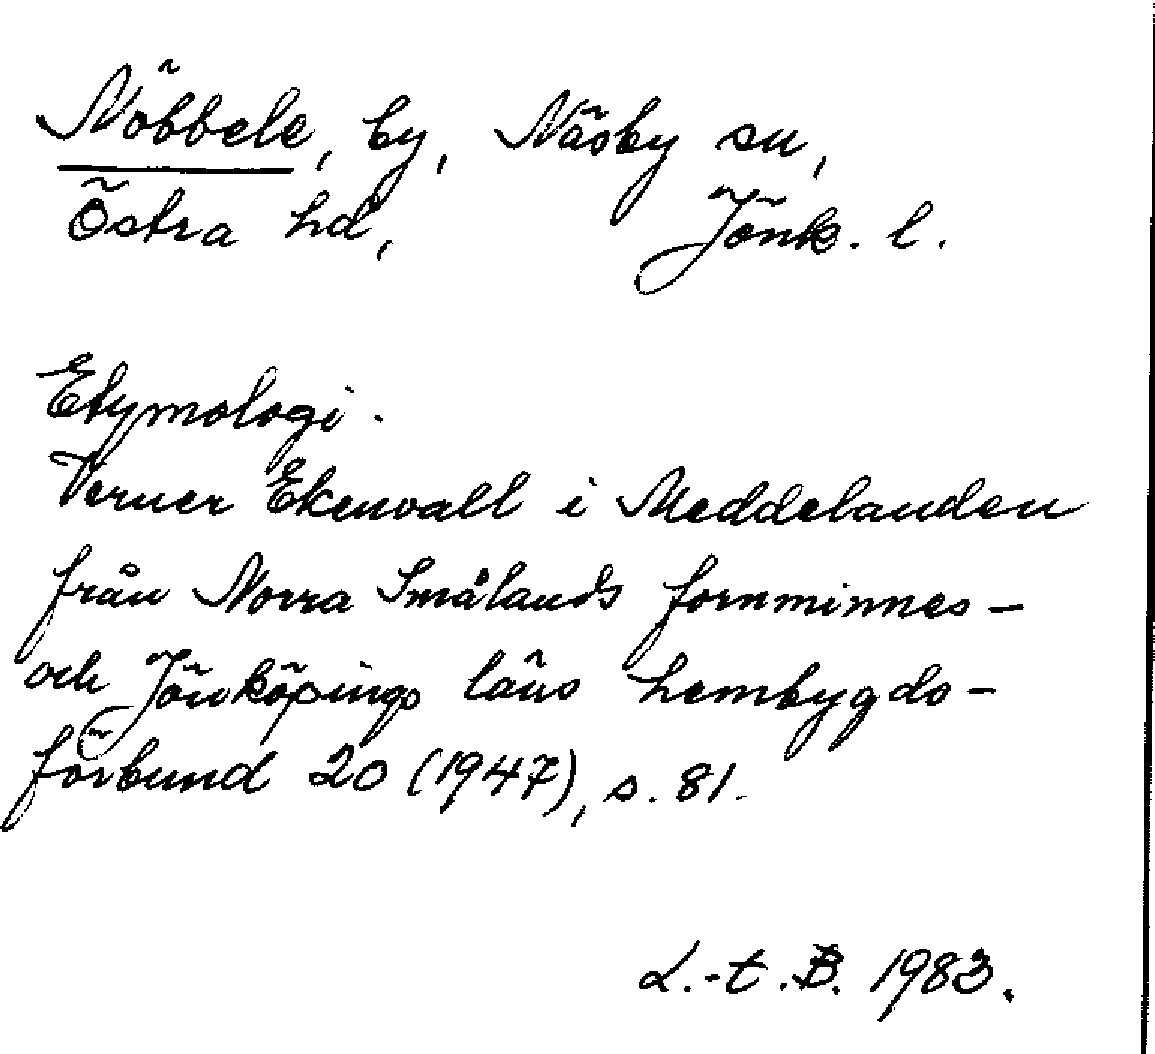 Nöbbele, by, Näsby sn,
Östra hd, Jönk. l.
Etymologi.
Verner Ekenvall i Meddelanden
från Norra Smålands fornminnes-
och Jönköpings läns hembygds-
förbund 20 (1947), s. 81.
L.-t. B. 1983.